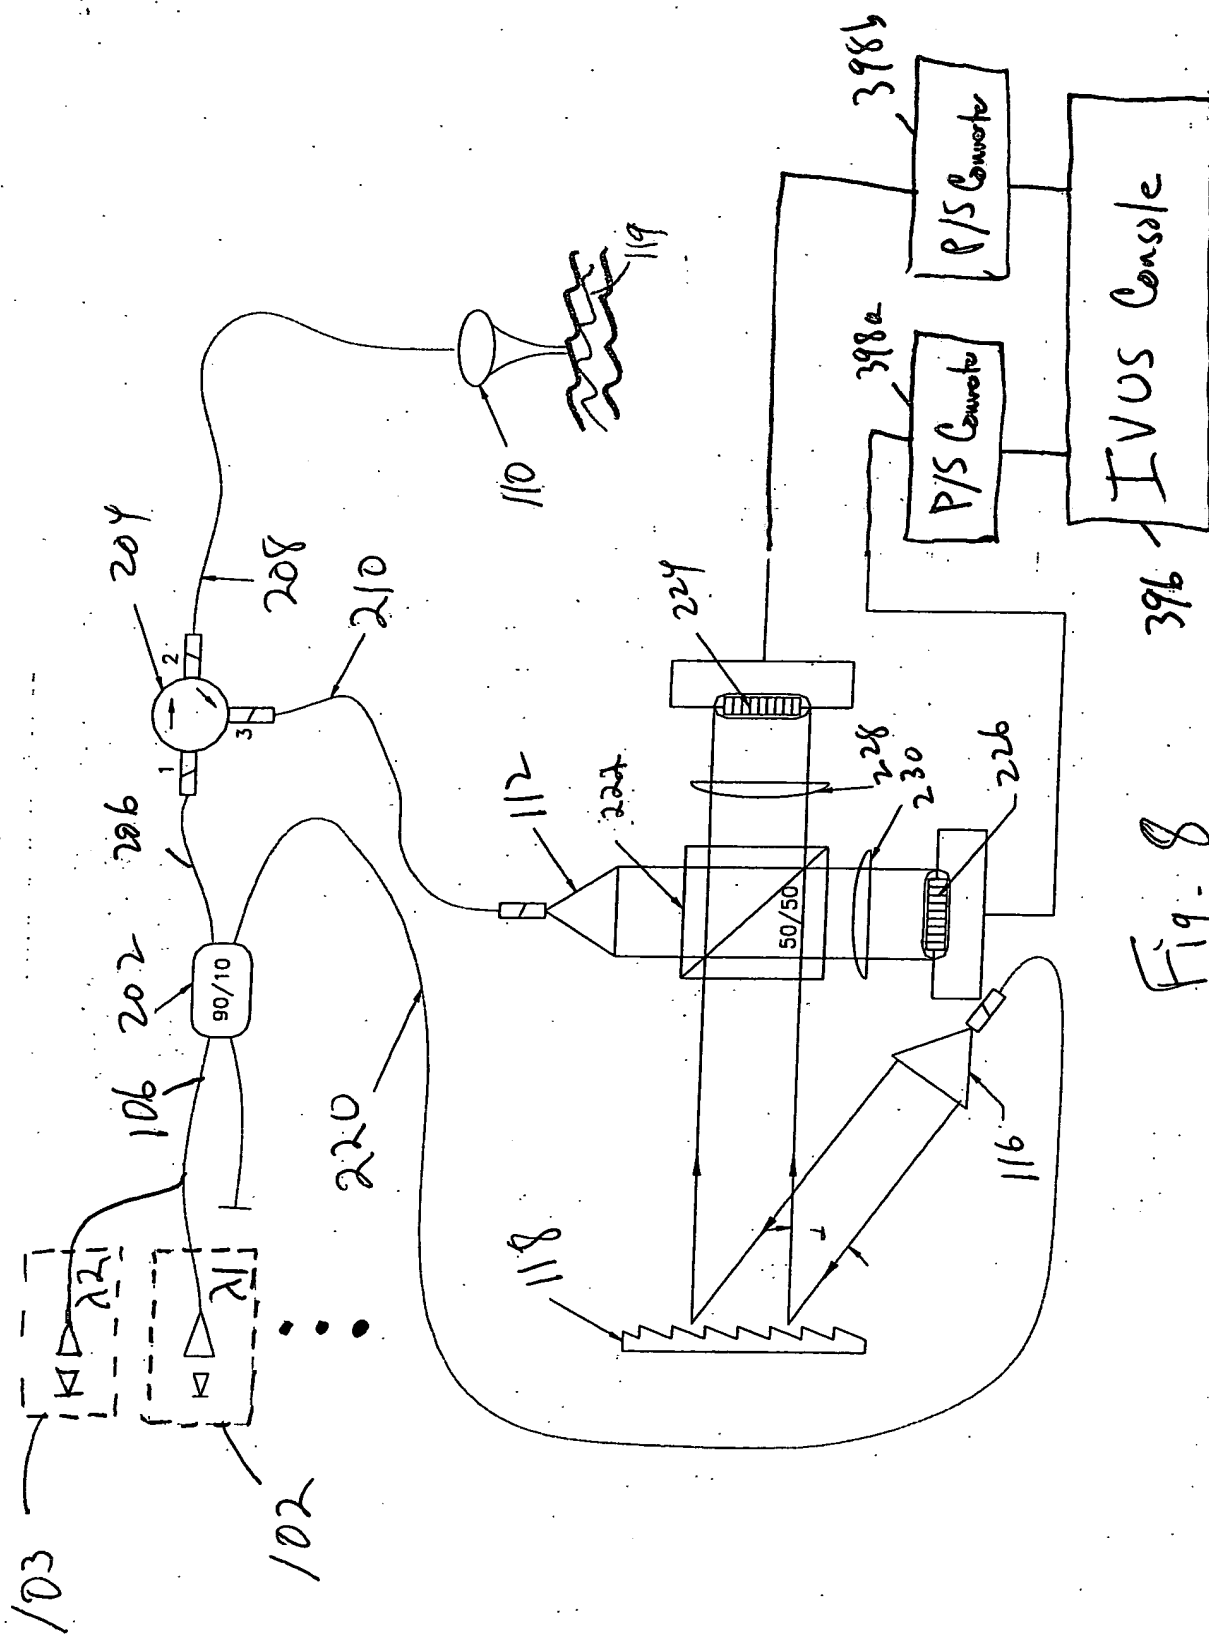 103
λ2
102
λ1
106
202
90/10
206
204
1
2
3
208
210
110
119
220
112
222
50/50
224
228
230
226
118
116
398b
P/S Convertor
398a
P/S Convertor
IVUS Console
396
Fig. 8